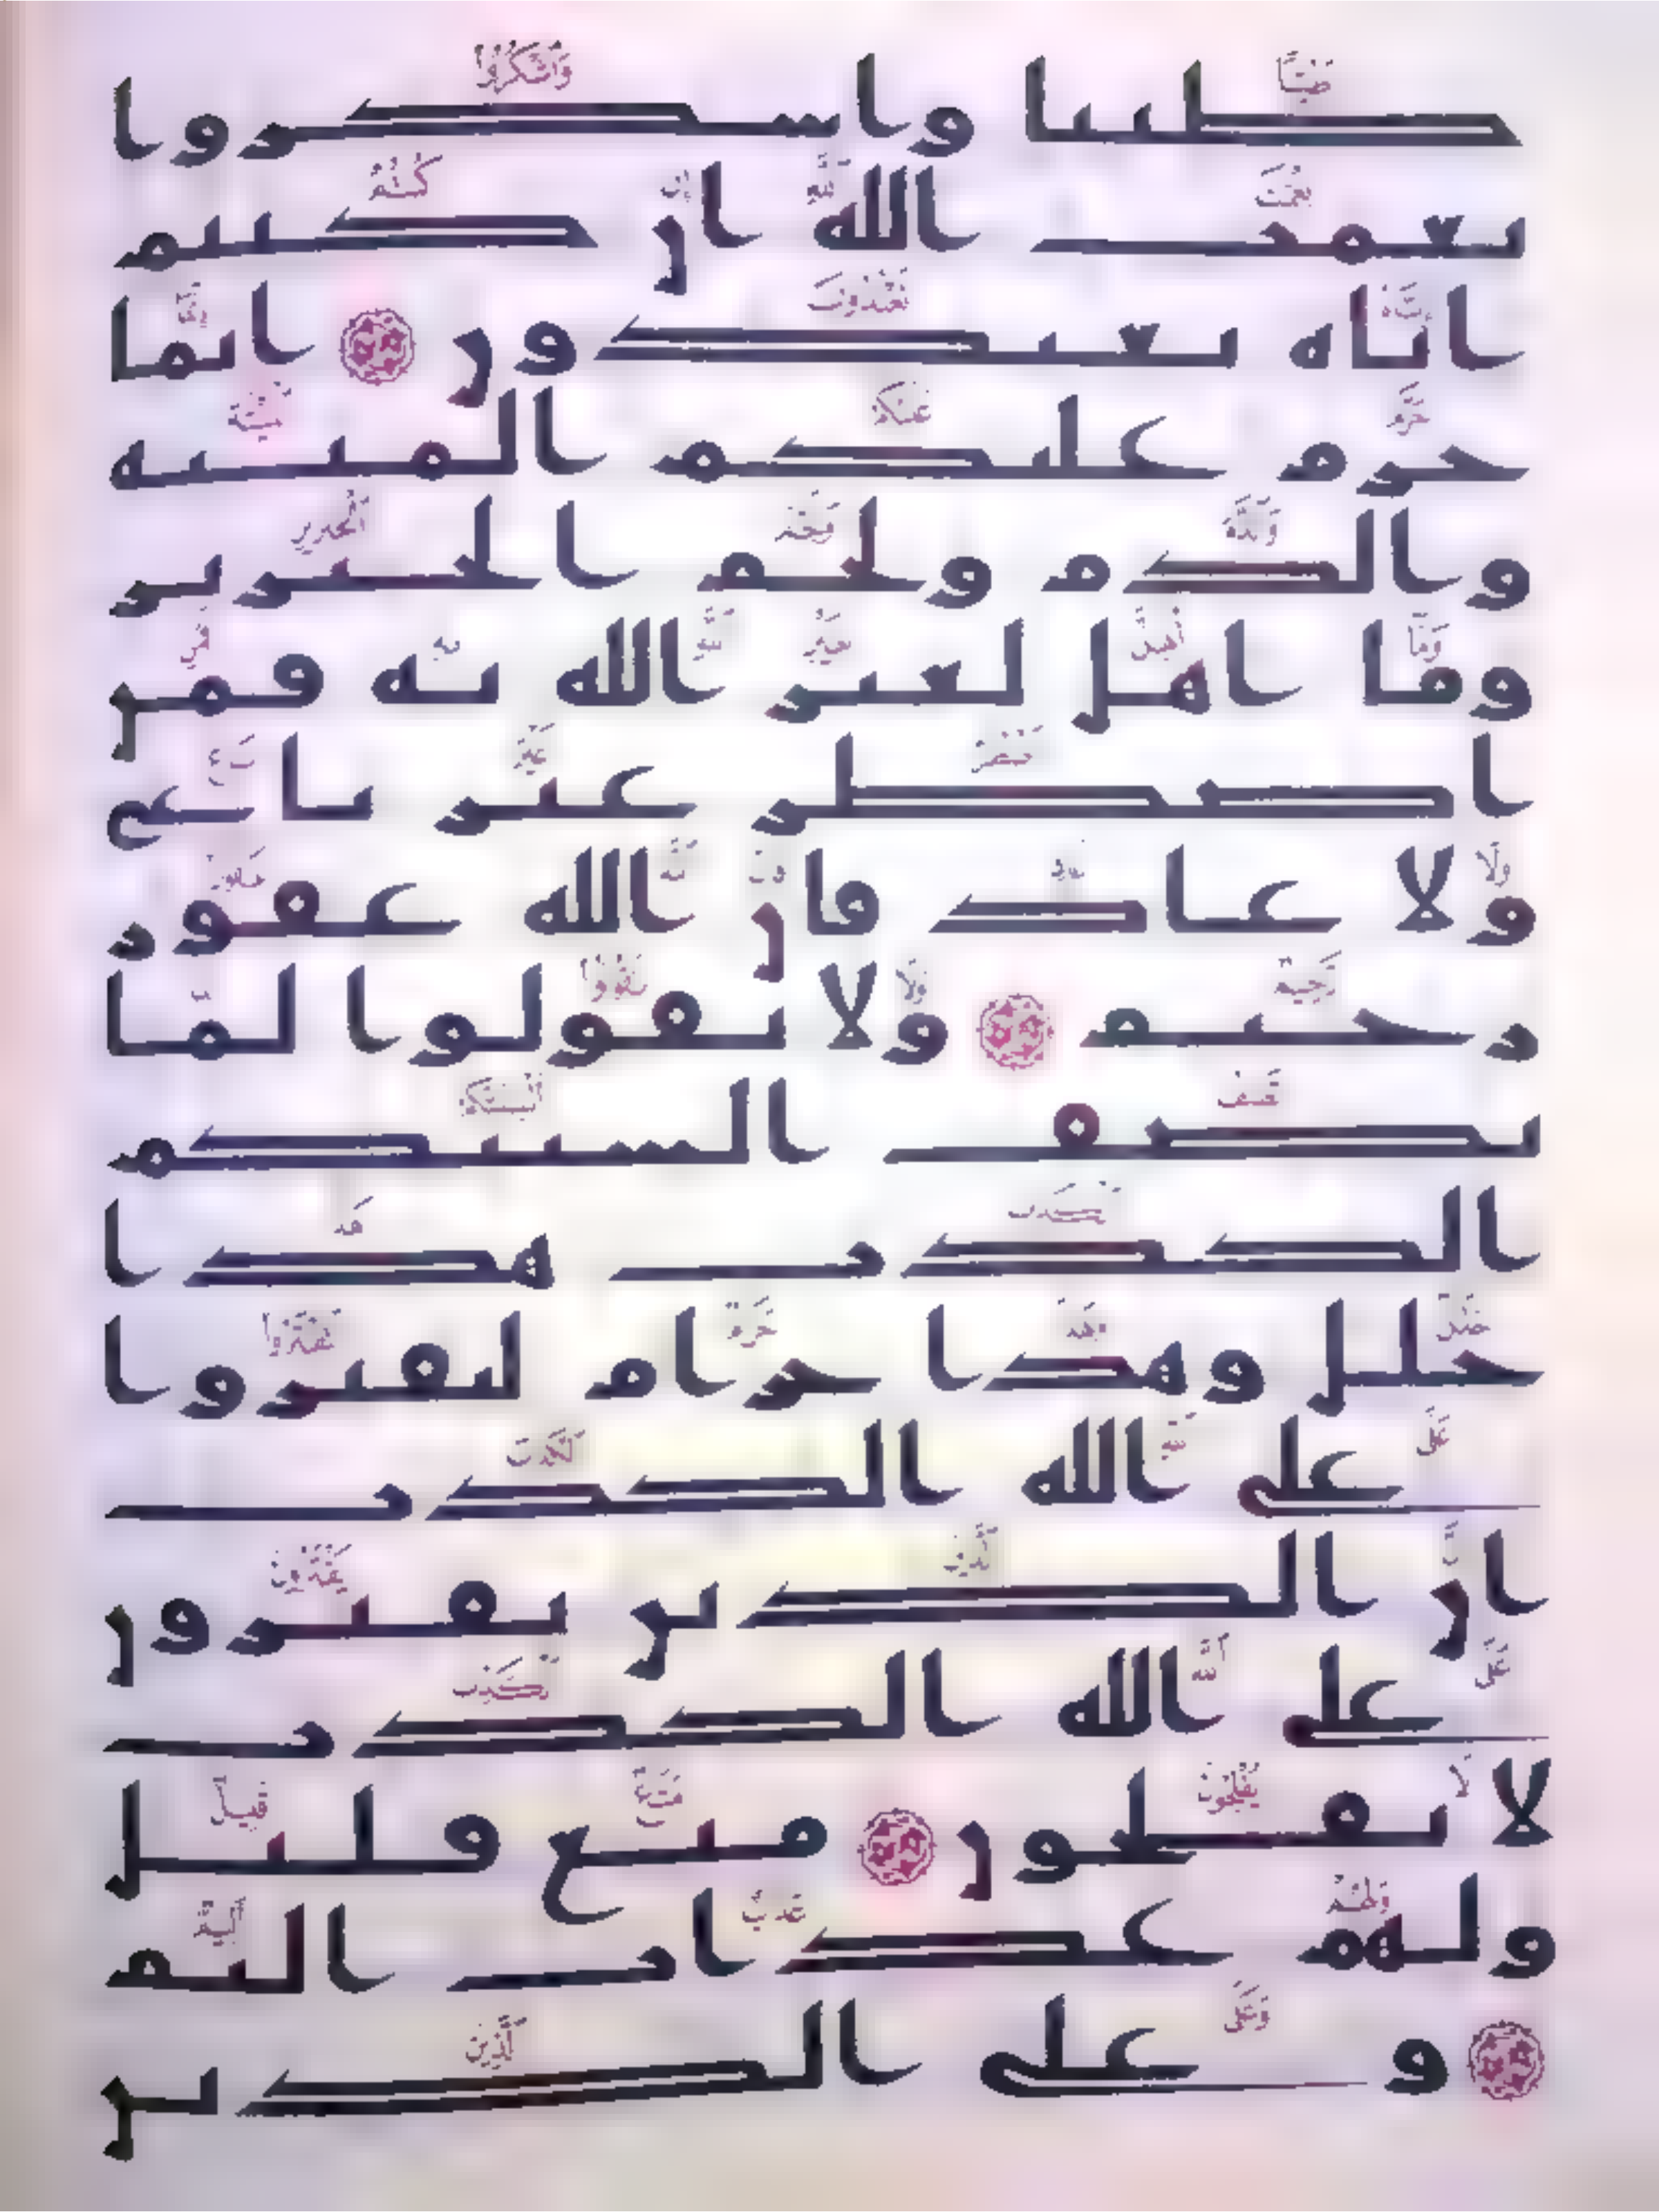 طيبا واشكروا
نعمت الله ان كنتم
اياه تعبدون ۝ انما
حرم عليكم الميتة
والدم ولحم الخنزير
وما اهل لغير الله به فمن
اضطر غير باغ
ولا عاد فان الله غفور
رحيم ۝ ولا تقولوا لما
تصف السنتكم
الكذب هذا
حلل وهذا حرام لتفتروا
على الله الكذب
ان الذين يفترون
على الله الكذب
لا يفلحون ۝ متع قليل
ولهم عذاب اليم
۝ وعلى الذين